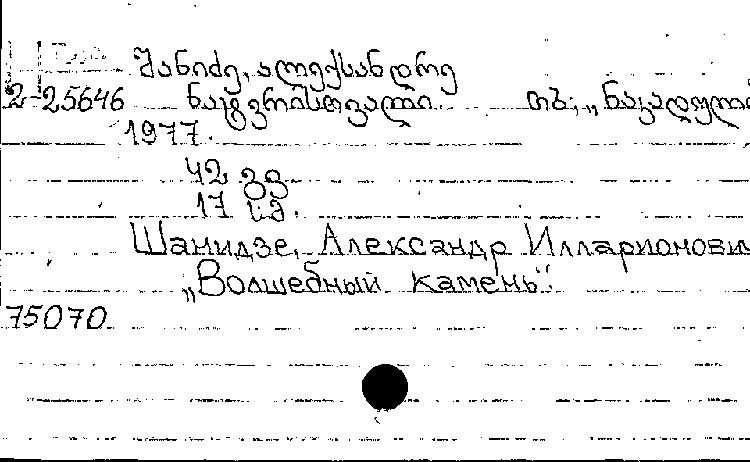 შანიძე, ალექსანდრე
2-25646 ნატვრისთვალი. თბ., „ნაკადული
1977.
42 გვ
17 სმ.
Шанидзе, Александр Илларионови
„Волшебный камень“.
75070